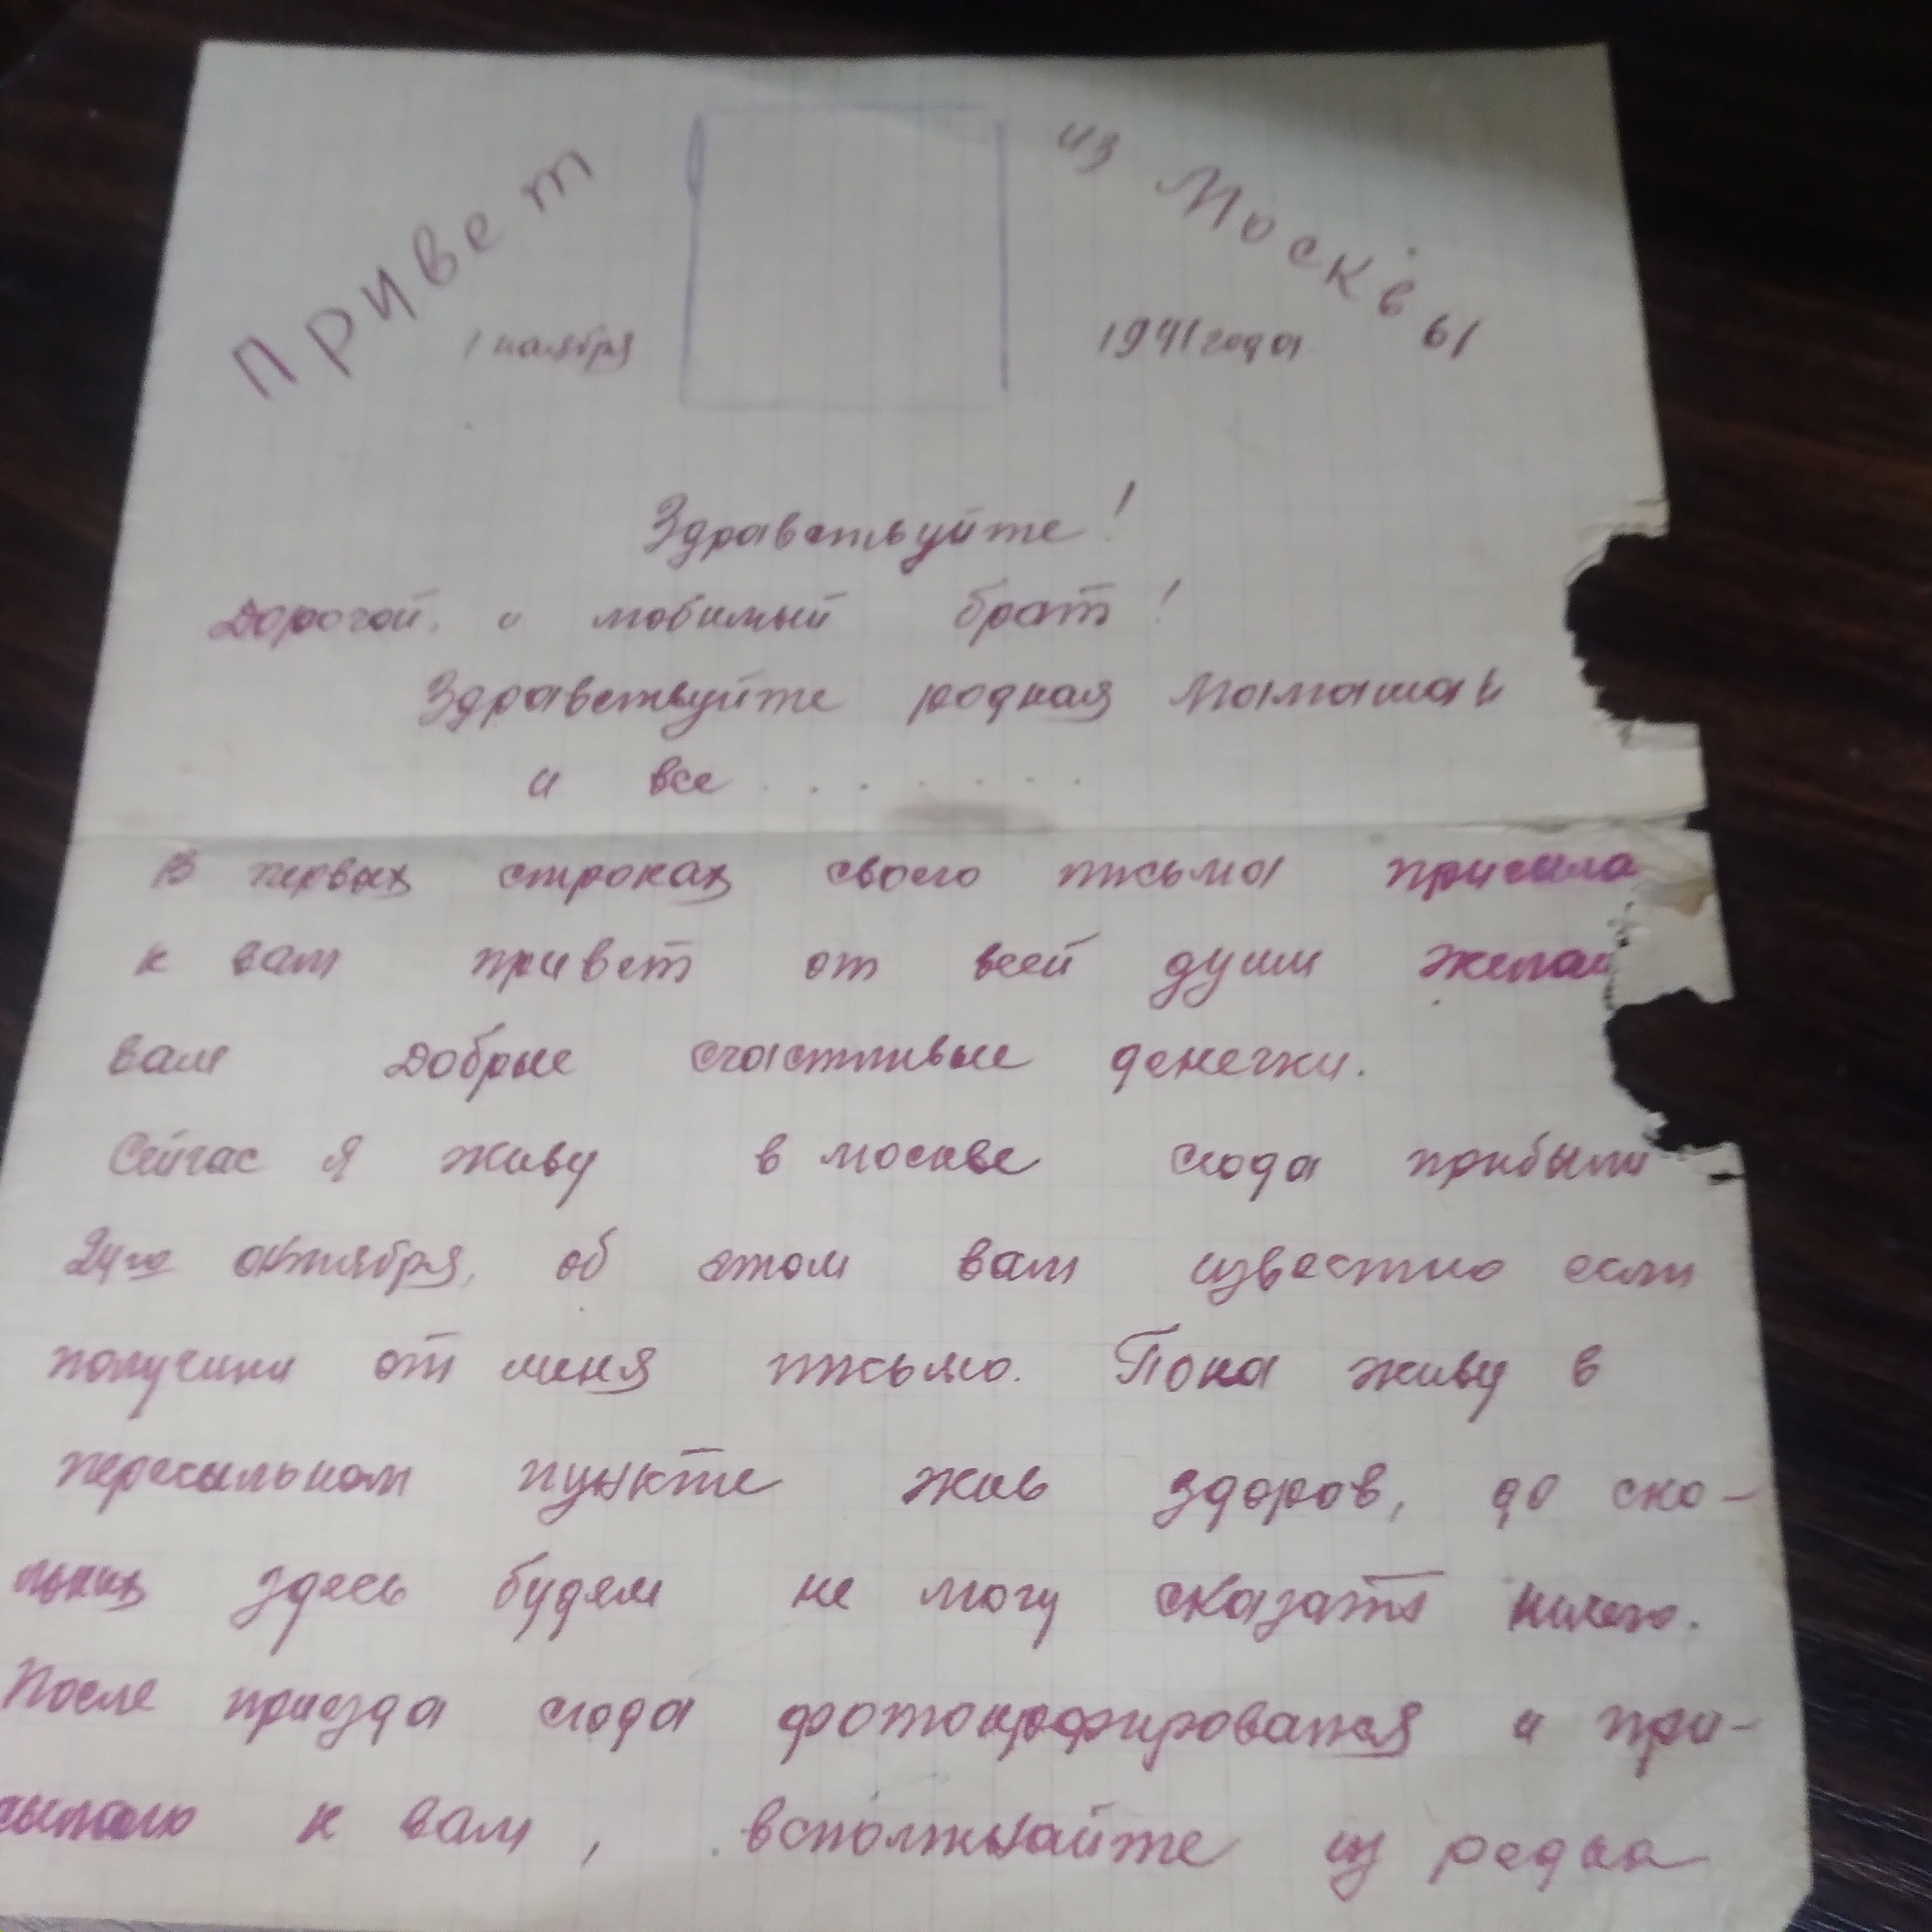 Привет из Москвы
1 ноября 1941 года
Здравствуйте!
Дорогой, и любимый брат!
Здравствуйте родная Мамаша и
и все . . . . . . .
В первых строках своего письма присыла
к вам привет от всей души желаю
вам добрые счастливые денечки.
Сейчас я живу в москве сюда прибыли
24го октября, об этом вам известно если
получили от меня письмо. Пока живу в
пересыльном пункте жив здоров, до ско-
льких здесь будем не могу сказать ничего.
После приезда сюда фотокрофировался и при-
сылаю к вам, вспомжнайте из редка